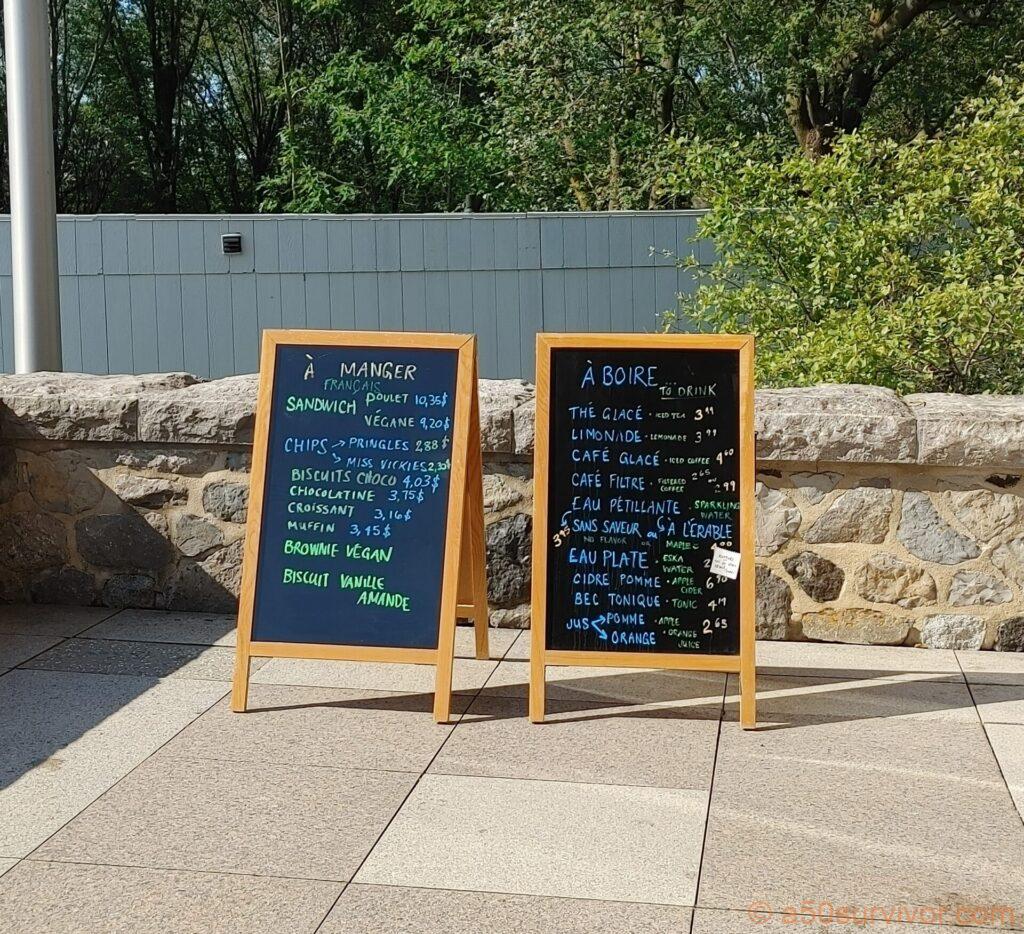 À MANGER
FRANÇAIS
SANDWICH POULET 10,35$
VÉGANE 9,20$
CHIPS PRINGLES 2,88$
MISS VICKIES 2,30$
BISCUITS CHOCO 4,03$
CHOCOLATINE 3,75$
CROISSANT 3,16$
MUFFIN 3,45$
BROWNIE VÉGAN
BISCUIT VANILLE
AMANDE
À BOIRE
TO DRINK
THÉ GLACÉ • ICED TEA
LIMONADE • LEMONADE
CAFÉ GLACÉ • ICED COFFEE 4 60
CAFÉ FILTRE • FILTERED COFFEE 2 65
EAU PÉTILLANTE • SPARKLING WATER
SANS SAVEUR OU À L'ÉRABLE
NO FLAVOR OR MAPLE
EAU PLATE • ESKA WATER
CIDRE POMME • APPLE CIDER
BEC TONIQUE • TONIC
JUS POMME • APPLE
ORANGE • ORANGE JUICE
© a50survivor.com